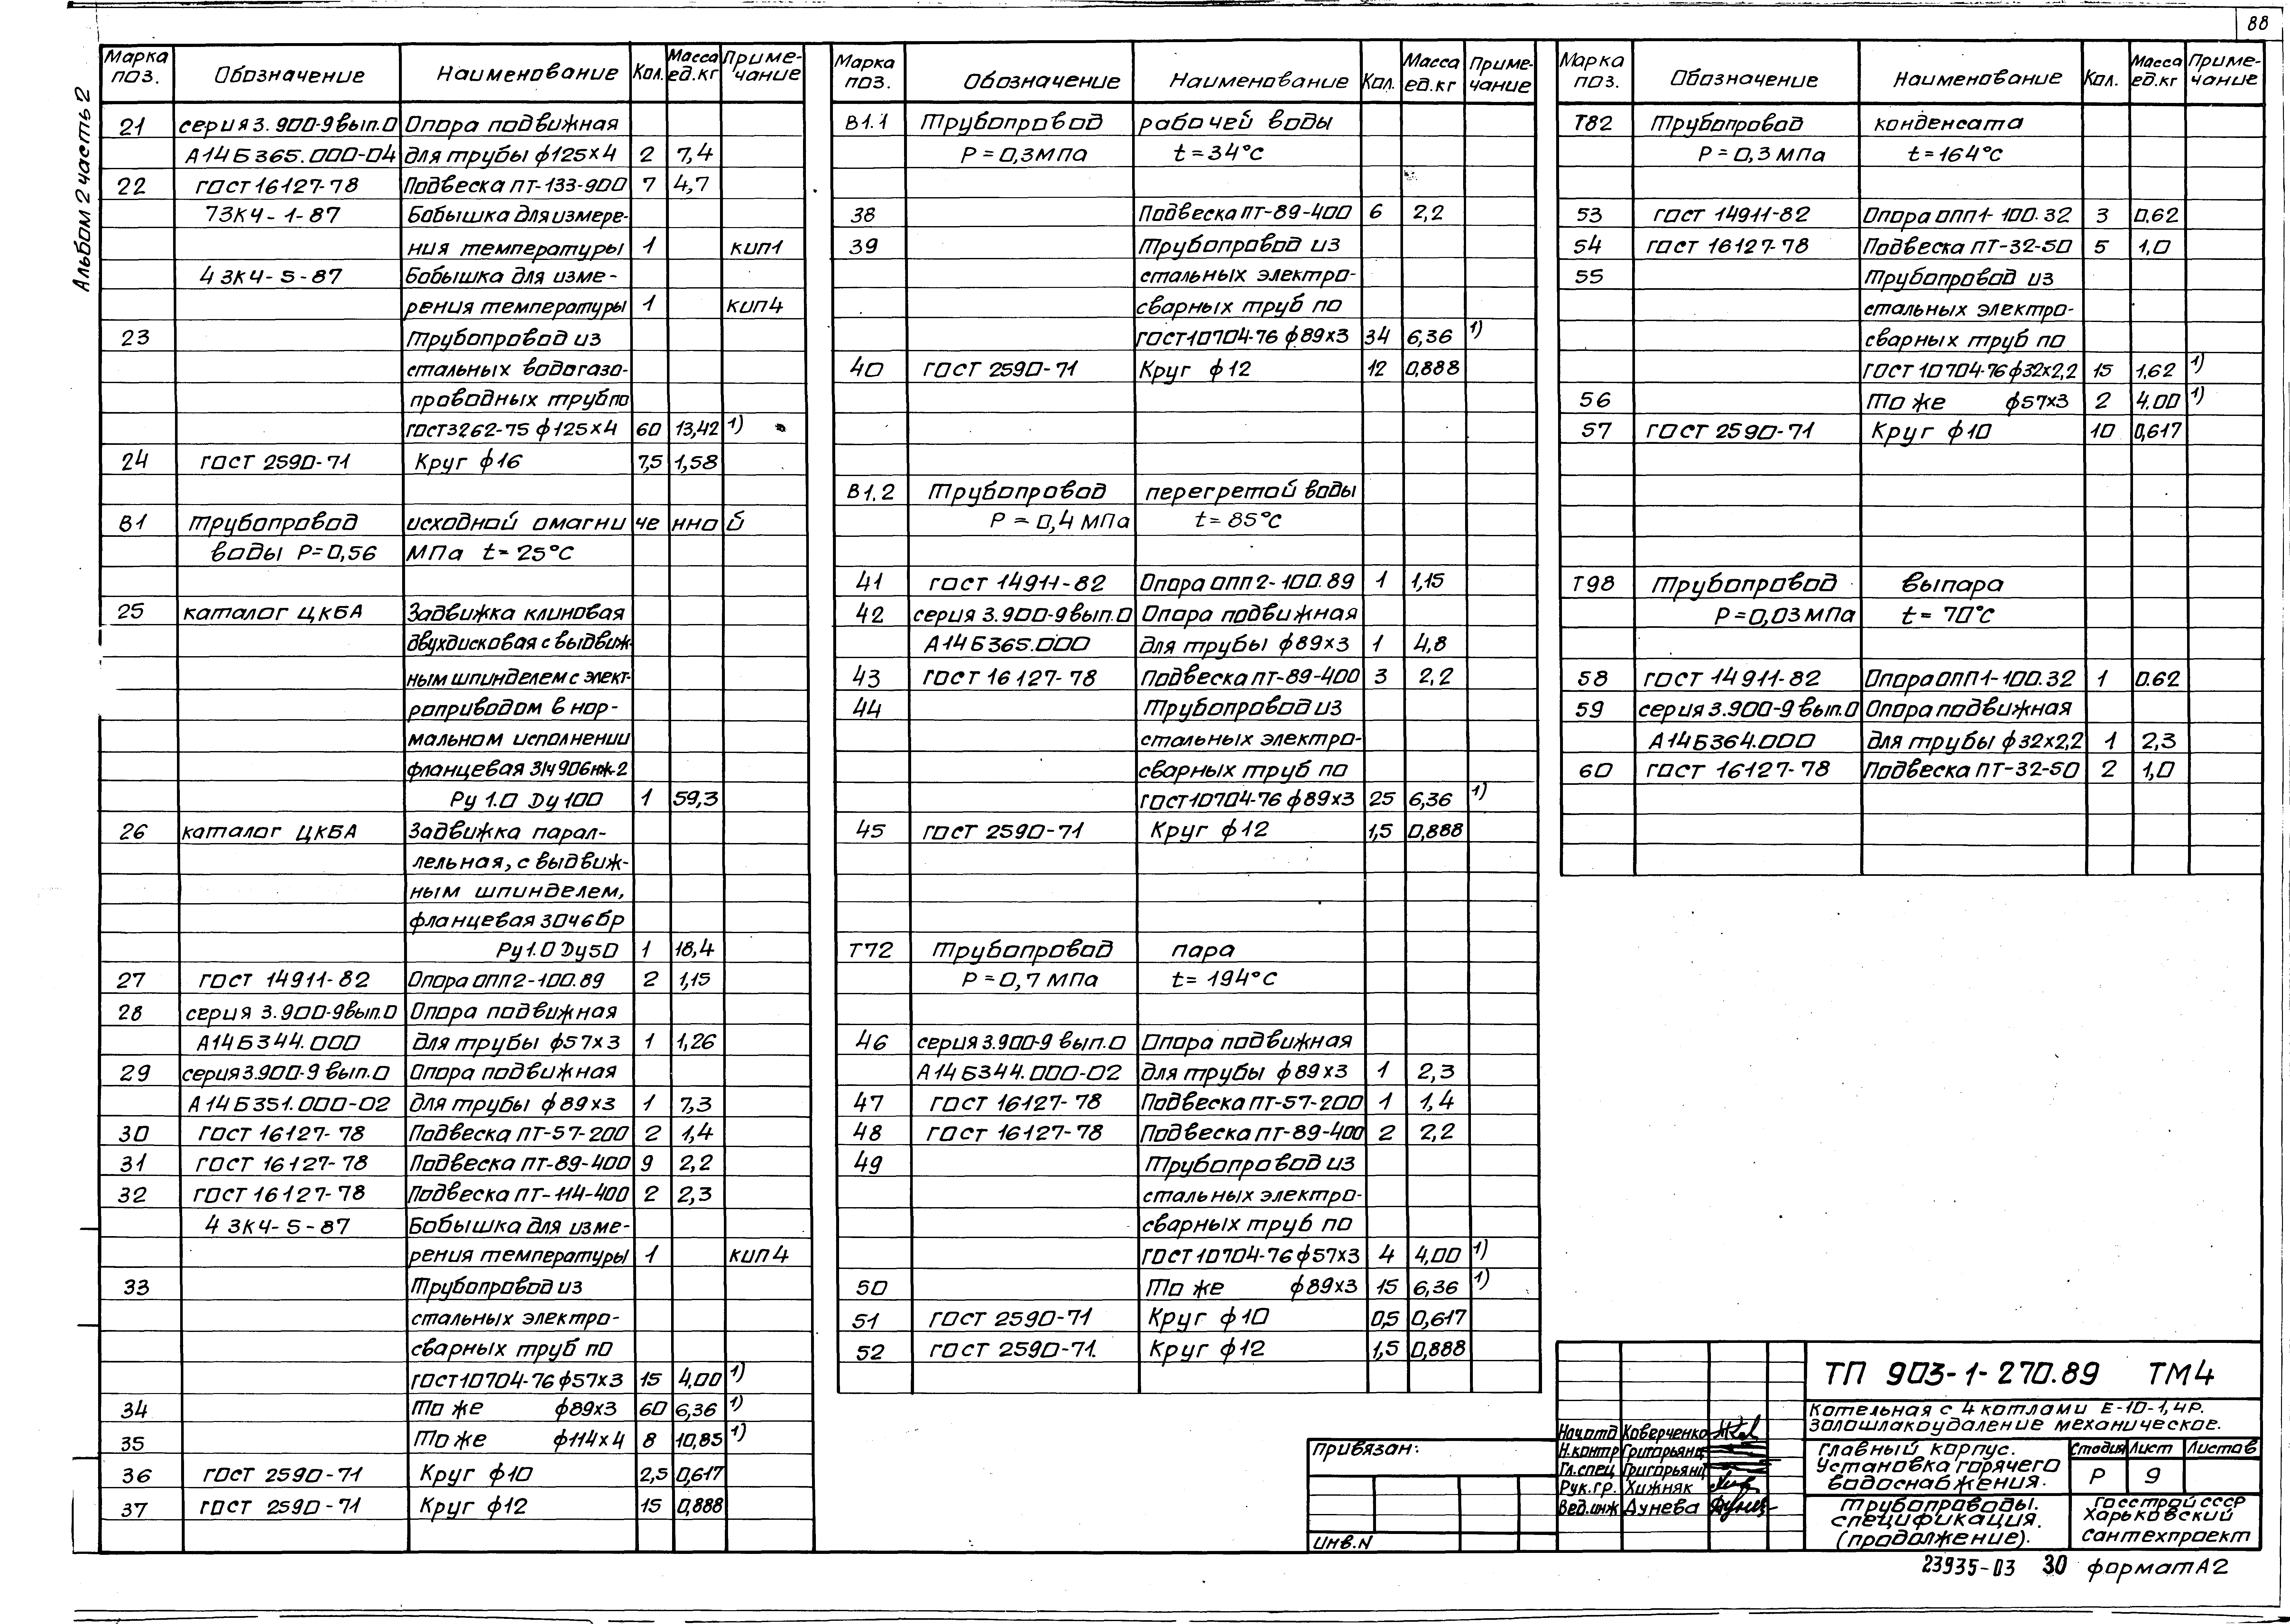 88
Альбом 2 часть 2
Марка поз. Обозначение Наименование Кол. Масса ед.кг Приме-чание
21 серия 3.900-9 вып.0 Опора подвижная
А14Б365.000-04 для трубы ф125х4 2 7,4
22 гост 16127-78 Подвеска ПТ-133-900 7 4,7
73К4-1-87 Бобышка для измере-
ния температуры 1 кип1
4 ЗК4-5-87 Бобышка для изме-
рения температуры 1 кип4
23 Трубопровод из
стальных водогазо-
проводных труб по
гост3262-75 ф125х4 60 13,42 1)
24 гост 2590-71 Круг ф16 7,5 1,58
В1 Трубопровод исходной омагниченной
воды Р=0,56 МПа t=25°С
25 каталог ЦКБА Задвижка клиновая
двухдисковая с выдвиж-
ным шпинделем с элект-
роприводом в нор-
мальном исполнении
фланцевая 31ч906нж-2
Ру 1.0 Ду 100 1 59,3
26 каталог ЦКБА Задвижка парал-
лельная, с выдвиж-
ным шпинделем,
фланцевая 30ч6бр
Ру1.0 Ду50 1 18,4
27 гост 14911-82 Опора ОПП2-100.89 2 1,15
28 серия 3.900-9вып.0 Опора подвижная
А14Б344.000 для трубы ф57х3 1 1,26
29 серия3.900-9 вып.0 Опора подвижная
А14Б351.000-02 для трубы ф89х3 1 7,3
30 гост 16127-78 Подвеска ПТ-57-200 2 1,4
31 гост 16127-78 Подвеска ПТ-89-400 9 2,2
32 гост 16127-78 Подвеска ПТ-114-400 2 2,3
4 ЗК4-5-87 Бобышка для изме-
рения температуры 1 кип4
33 Трубопровод из
стальных электро-
сварных труб по
гост10704-76 ф57х3 15 4,00 1)
34 То же ф89х3 60 6,36 1)
35 То же ф114х4 8 10,85 1)
36 гост 2590-71 Круг ф10 2,5 0,617
37 гост 2590-71 Круг ф12 15 0,888
Марка поз. Обозначение Наименование Кол. Масса ед.кг Приме-чание
В1.1 Трубопровод рабочей воды
Р=0,3МПа t=34°С
38 Подвеска ПТ-89-400 6 2,2
39 Трубопровод из
стальных электро-
сварных труб по
гост10704-76 ф89х3 34 6,36 1)
40 гост 2590-71 Круг ф12 12 0,888
В1.2 Трубопровод перегретой воды
Р=0,4 МПа t=85°С
41 гост 14911-82 Опора ОПП2-100.89 1 1,15
42 серия 3.900-9вып.0 Опора подвижная
А14Б365.000 для трубы ф89х3 1 4,8
43 гост 16127-78 Подвеска ПТ-89-400 3 2,2
44 Трубопровод из
стальных электро-
сварных труб по
гост10704-76 ф89х3 25 6,36 1)
45 гост 2590-71 Круг ф12 1,5 0,888
Т72 Трубопровод пара
Р=0,7 МПа t=194°С
46 серия3.900-9 вып.0 Опора подвижная
А14Б344.000-02 для трубы ф89х3 1 2,3
47 гост 16127-78 Подвеска ПТ-57-200 1 1,4
48 гост 16127-78 Подвеска ПТ-89-400 2 2,2
49 Трубопровод из
стальных электро-
сварных труб по
гост10704-76 ф57х3 4 4,00 1)
50 То же ф89х3 15 6,36 1)
51 гост 2590-71 Круг ф10 0,5 0,617
52 гост 2590-71. Круг ф12 1,5 0,888
Марка поз. Обозначение Наименование Кол. Масса ед.кг Приме-чание
Т82 Трубопровод конденсата
Р=0,3 МПа t=164°С
53 гост 14911-82 Опора ОПП1-100.32 3 0.62
54 гост 16127-78 Подвеска ПТ-32-50 5 1,0
55 Трубопровод из
стальных электро-
сварных труб по
гост10704-76 ф32х2,2 15 1,62 1)
56 То же ф57х3 2 4.00 1)
57 гост 2590-71 Круг ф10 10 0,617
Т98 Трубопровод выпара
Р=0,03МПа t=70°С
58 гост 14911-82 Опора ОПП1-100.32 1 0.62
59 серия 3.900-9 вып.0 Опора подвижная
А14Б364.000 для трубы ф32х2,2 1 2,3
60 гост 16127-78 Подвеска ПТ-32-50 2 1,0
Привязан:
Инв.N
Нач.отд Коверченко
Н.контр Григорьянц
Гл.спец Григорьянц
Рук.гр. Хижняк
Вед.инж Дунева
ТП 903-1-270.89 ТМ4
Котельная с 4 котлами Е-10-1,4Р.
Золошлакоудаление механическое.
Главный корпус.
Установка горячего
водоснабжения.
Стадия Лист Листов
Р 9
Трубопроводы.
Спецификация.
(продолжение).
Госстрой СССР
Харьковский
Сантехпроект
23935-03 30 формат А2